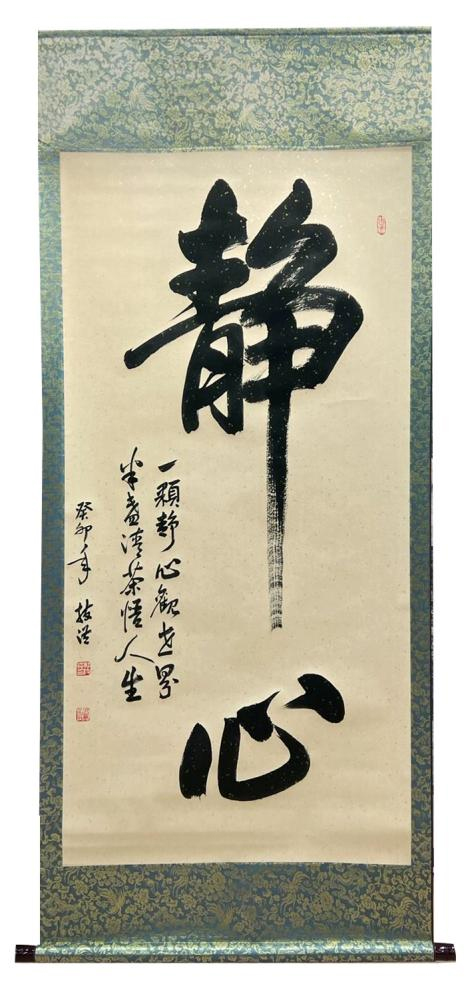 静心
一顆静心觀世界
半盞清茶悟人生
癸卯年